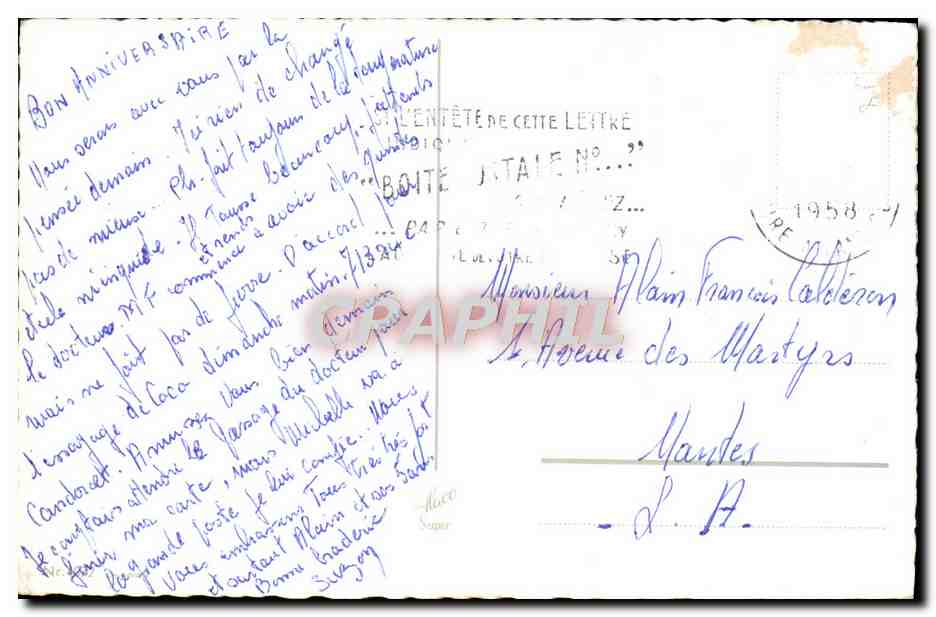 BON ANNIVERSAIRE
Nous serons avec vous par la
pensée demain. J'ai rien de changé
pas de mieux... Ph. fait toujours de la température
et cela m'inquiète. Il tousse beaucoup. J'attends
le docteur. M.F commence à avoir des
et rends
mais ne fait pas de fièvre. D'accord pour
l'essayage de Coco dimanche matin. 71394 C
Condorcet. Amusez vous bien demain
Je comptais attendre le passage du docteur pour
finir ma carte, mais Michelle va à
la grande poste je lui confie. Nous
vous embrassons tous très très fort
et surtout Alain et ses
Bonne braderie
Suzon
L'ENTÊTE DE CETTE LETTRE
"BOITE TALE No..."
Z...
1958
RE
Monsieur Alain François Caldéron
1, Avenue des Martyrs
Nantes
- L. A.
CRAPHIL
Super